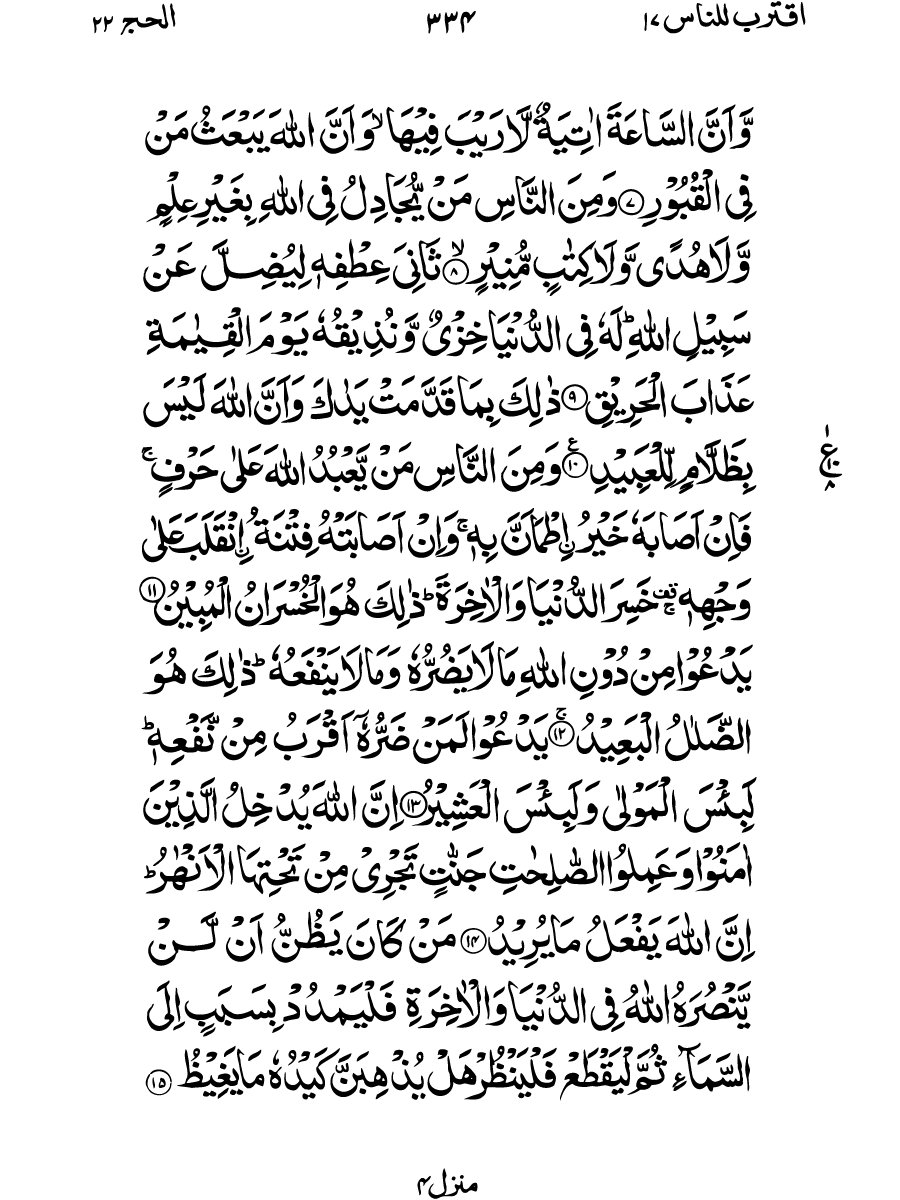 اقترب للناس ۱۷ ۳۳۴ الحج ۲۲
وَّاَنَّ السَّاعَةَ اٰتِيَةٌ لَّا رَيْبَ فِيْهَا ۙ وَاَنَّ اللّٰهَ يَبْعَثُ مَنْ
فِى الْقُبُوْرِ ﴿۷﴾ وَمِنَ النَّاسِ مَنْ يُّجَادِلُ فِى اللّٰهِ بِغَيْرِ عِلْمٍ
وَّلَا هُدًى وَّلَا كِتٰبٍ مُّنِيْرٍ ۙ﴿۸﴾ ثَانِىَ عِطْفِهٖ لِيُضِلَّ عَنْ
سَبِيْلِ اللّٰهِ ؕ لَهٗ فِى الدُّنْيَا خِزْىٌ وَّنُذِيْقُهٗ يَوْمَ الْقِيٰمَةِ
عَذَابَ الْحَرِيْقِ ﴿۹﴾ ذٰلِكَ بِمَا قَدَّمَتْ يَدٰكَ وَاَنَّ اللّٰهَ لَيْسَ
بِظَلَّامٍ لِّلْعَبِيْدِ ﴿۱۰﴾ۧ وَمِنَ النَّاسِ مَنْ يَّعْبُدُ اللّٰهَ عَلٰى حَرْفٍ ۚ
ع ۱ ۱۰ ۸
فَاِنْ اَصَابَهٗ خَيْرُ ۨاطْمَاَنَّ بِهٖ ۚ وَاِنْ اَصَابَتْهُ فِتْنَةُ ۨانْقَلَبَ عَلٰى
وَجْهِهٖ ۚقف خَسِرَ الدُّنْيَا وَالْاٰخِرَةَ ؕ ذٰلِكَ هُوَ الْخُسْرَانُ الْمُبِيْنُ ﴿۱۱﴾
يَدْعُوْا مِنْ دُوْنِ اللّٰهِ مَا لَا يَضُرُّهٗ وَمَا لَا يَنْفَعُهٗ ؕ ذٰلِكَ هُوَ
الضَّلٰلُ الْبَعِيْدُ ۚ﴿۱۲﴾ يَدْعُوْا لَمَنْ ضَرُّهٗۤ اَقْرَبُ مِنْ نَّفْعِهٖ ؕ
لَبِئْسَ الْمَوْلٰى وَلَبِئْسَ الْعَشِيْرُ ﴿۱۳﴾ اِنَّ اللّٰهَ يُدْخِلُ الَّذِيْنَ
اٰمَنُوْا وَعَمِلُوا الصّٰلِحٰتِ جَنّٰتٍ تَجْرِىْ مِنْ تَحْتِهَا الْاَنْهٰرُ ؕ
اِنَّ اللّٰهَ يَفْعَلُ مَا يُرِيْدُ ﴿۱۴﴾ مَنْ كَانَ يَظُنُّ اَنْ لَّنْ
يَّنْصُرَهُ اللّٰهُ فِى الدُّنْيَا وَالْاٰخِرَةِ فَلْيَمْدُدْ بِسَبَبٍ اِلَى
السَّمَآءِ ثُمَّ لْيَقْطَعْ فَلْيَنْظُرْ هَلْ يُذْهِبَنَّ كَيْدُهٗ مَا يَغِيْظُ ﴿۱۵﴾
منزل ۴